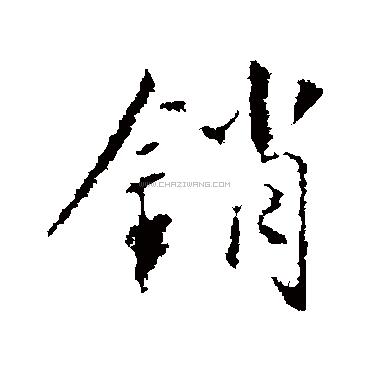 銷
WWW.CHAZIWANG.COM